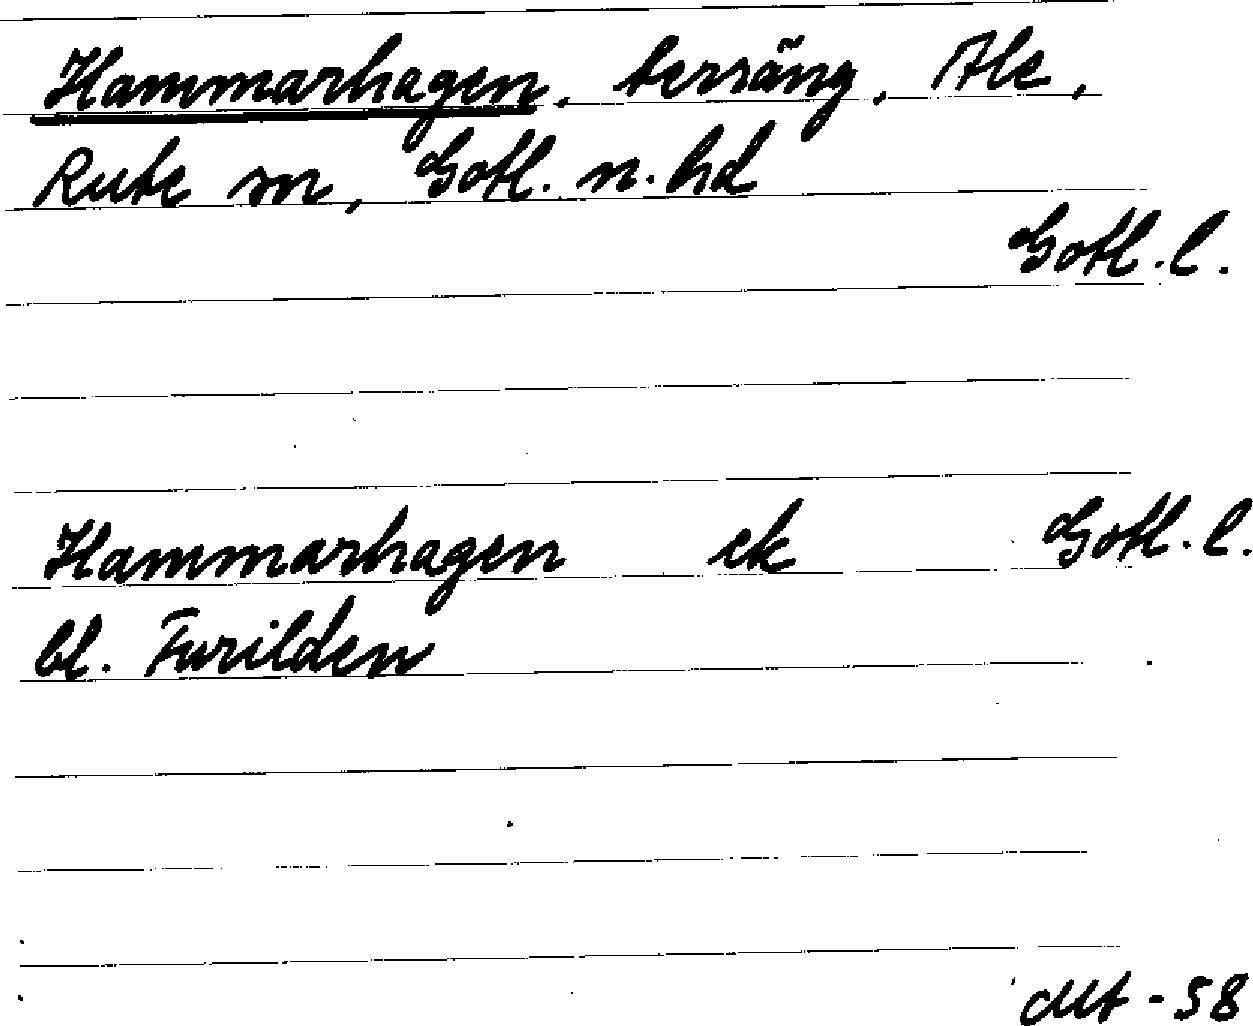 Hammarhagen, terräng, Ale,
Rute sn, Gotl. n. hd
Gotl. l.
Hammarhagen ek Gotl. l.
bl. Furilden
-58